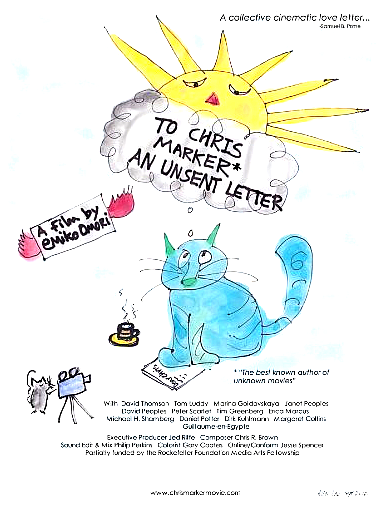 A collective cinematic love letter...
-Samuel B. Prime
TO CHRIS
MARKER*
AN UNSENT LETTER
A film by
emiko Omori
* "The best known author of
unknown movies"
With David Thomson Tom Luddy Marina Goldovskaya Janet Peoples
David Peoples Peter Scarlet Tim Greenberg Erika Marcus
Michael H. Shamberg Daniel Potter Dirk Kuhlmann Margaret Collins
Guillaume-en-Egypte
Executive Producer Jed Riffe Composer Chris R. Brown
Sound Edit & Mix Philip Perkins Colorist Gary Coates Online/Conform Jesse Spencer
Partially funded by the Rockefeller Foundation Media Arts Fellowship
www.chrismarkermovie.com